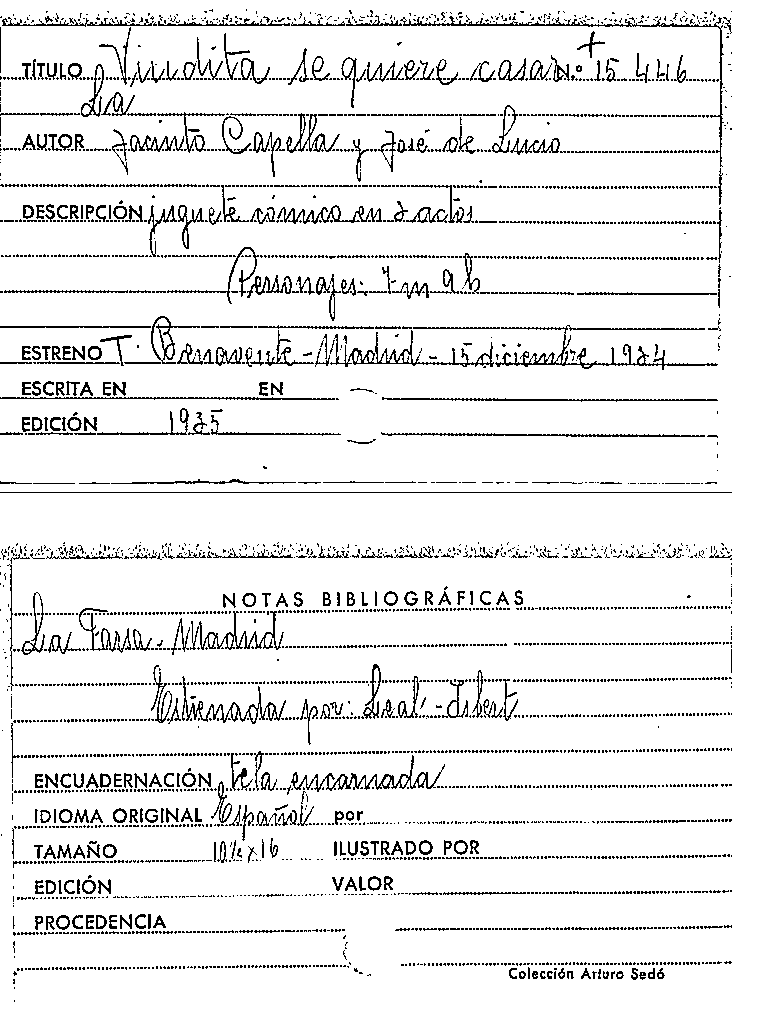 TÍTULO Viudita se quiere casar N.º + 15 446
La
AUTOR Jacinto Capella y José de Lucio
DESCRIPCIÓN juguete cómico en 3 actos
Personajes: 7 m 9 h
ESTRENO T. Benavente - Madrid - 15 diciembre 1934
ESCRITA EN EN
EDICIÓN 1935
NOTAS BIBLIOGRÁFICAS
La Farsa - Madrid
Estrenada por: Leal -
ENCUADERNACIÓN tela encarnada
IDIOMA ORIGINAL Español por
TAMAÑO 10½ x 16 ILUSTRADO POR
EDICIÓN VALOR
PROCEDENCIA
Colección Arturo Sedó